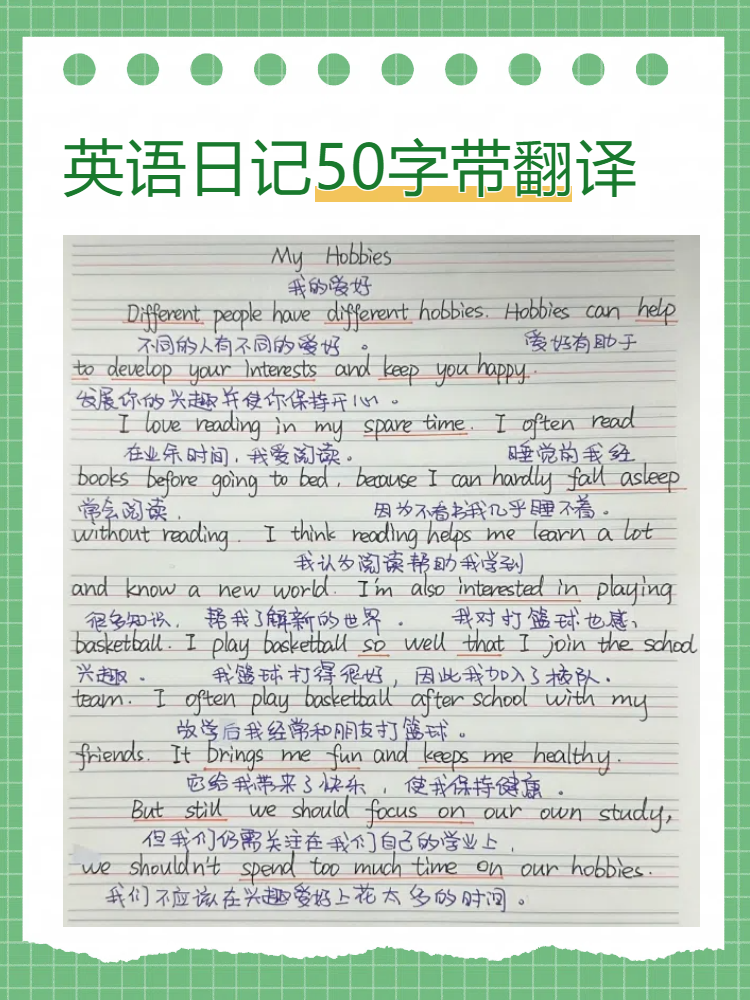 英语日记50字带翻译
My Hobbies
我的爱好
Different people have different hobbies. Hobbies can help
不同的人有不同的爱好。 爱好有助于
to develop your Interests and keep you happy.
发展你的兴趣并使你保持开心。
I love reading in my spare time. I often read
在业余时间，我爱阅读。 睡觉前我经
books before going to bed, because I can hardly fall asleep
常会阅读， 因为不看书我几乎睡不着。
without reading. I think reading helps me learn a lot
我认为阅读帮助我学到
and know a new world. I'm also interested in playing
很多知识，帮我了解新的世界。 我对打篮球也感
basketball. I play basketball so well that I join the school
兴趣。 我篮球打得很好，因此我加入了校队。
team. I often play basketball after school with my
放学后我经常和朋友打篮球。
friends. It brings me fun and keeps me healthy.
它给我带来了快乐，使我保持健康。
But still we should focus on our own study,
但我们仍需关注在我们自己的学业上，
we shouldn't spend too much time on our hobbies.
我们不应该在兴趣爱好上花太多的时间。